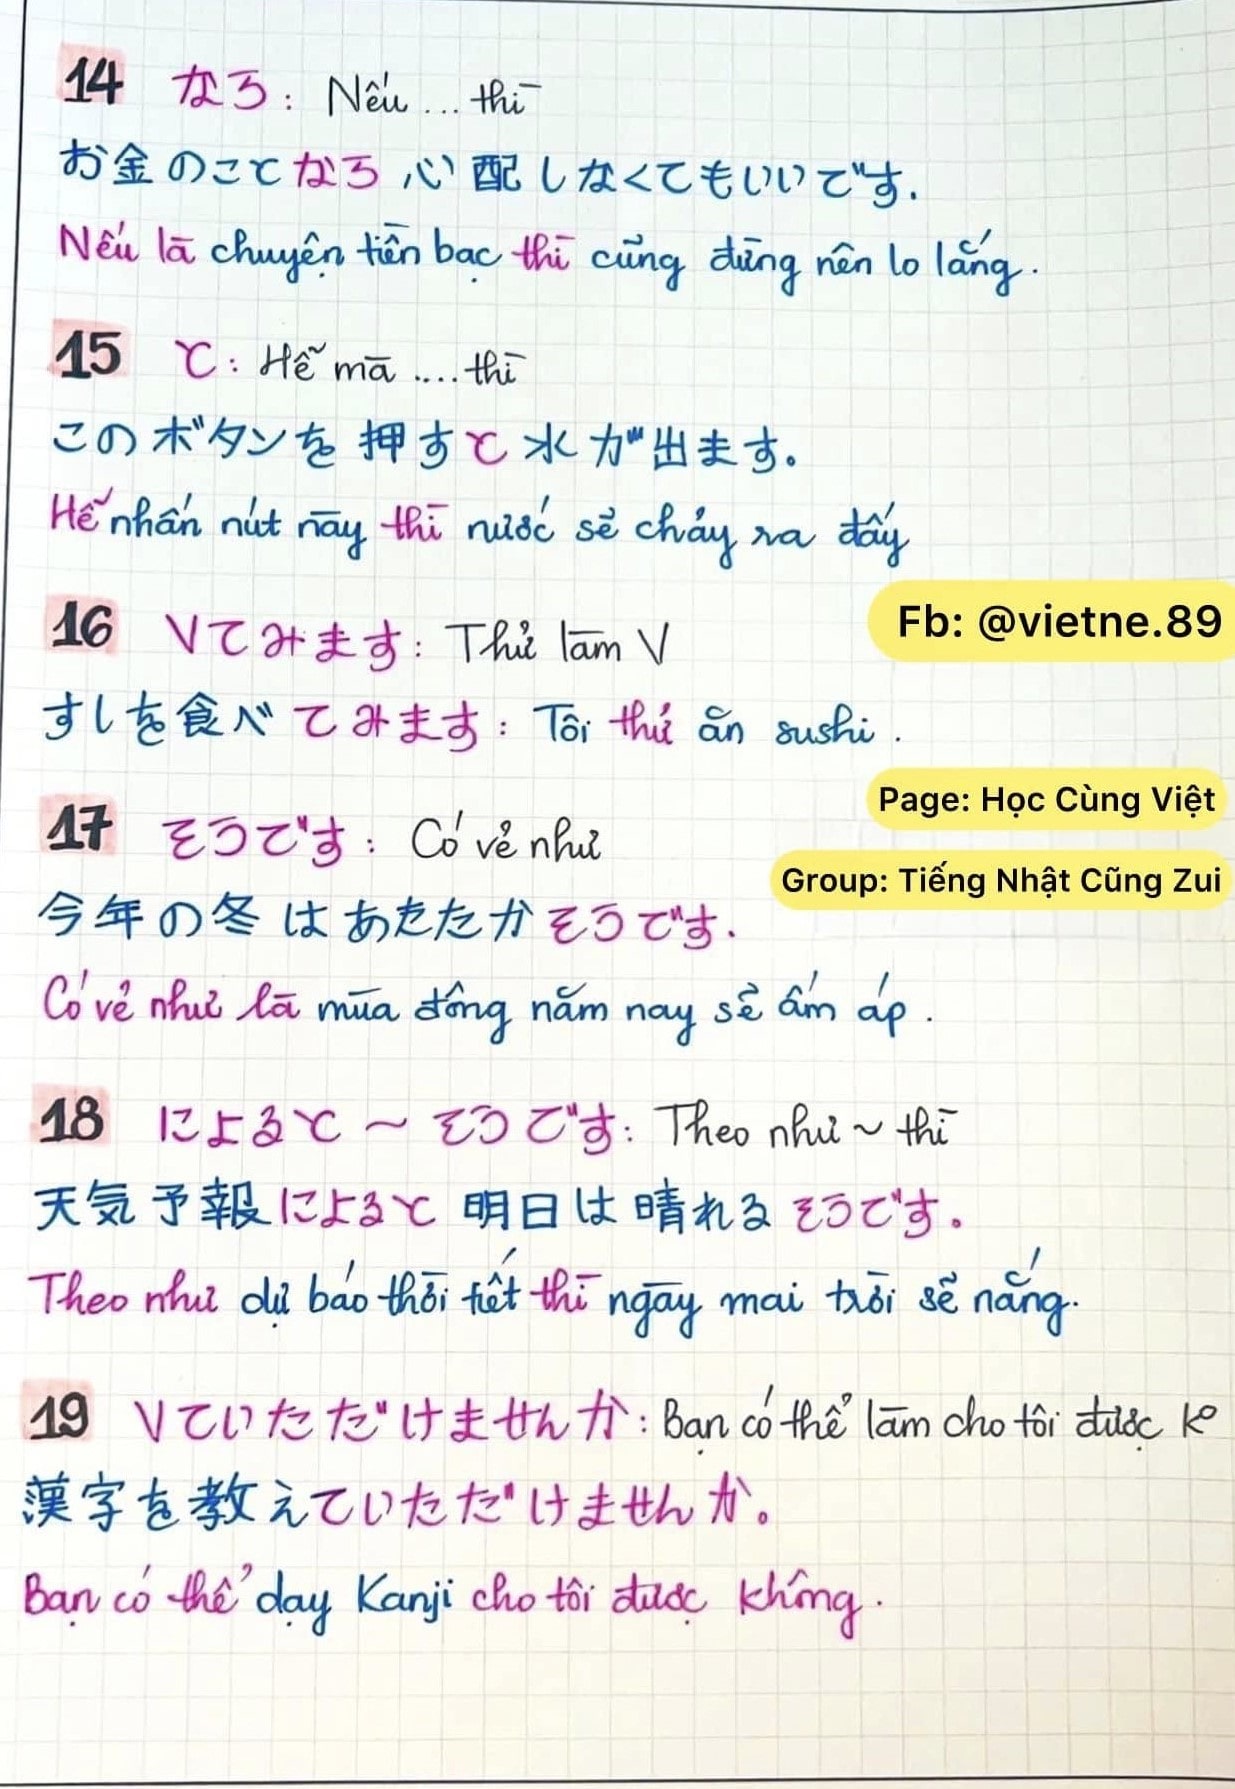 14 なら: Nếu ... thì
お金のことなら心配しなくてもいいです.
Nếu là chuyện tiền bạc thì cũng đừng nên lo lắng.
15 と: Hễ mà .... thì
このボタンを押すと水が出ます。
Hễ nhấn nút này thì nước sẽ chảy ra đấy
16 Vてみます: Thử làm V
Fb: @vietne.89
すしを食べてみます: Tôi thử ăn sushi.
Page: Học Cùng Việt
17 そうです: Có vẻ như
Group: Tiếng Nhật Cũng Zui
今年の冬はあたたかそうです.
Có vẻ như là mùa đông năm nay sẽ ấm áp.
18 によると ~ そうです: Theo như ~ thì
天気予報によると明日は晴れるそうです。
Theo như dự báo thời tiết thì ngày mai trời sẽ nắng.
19 Vていただけませんか: Bạn có thể làm cho tôi được ko
漢字を教えていただけませんか。
Bạn có thể dạy Kanji cho tôi được không.